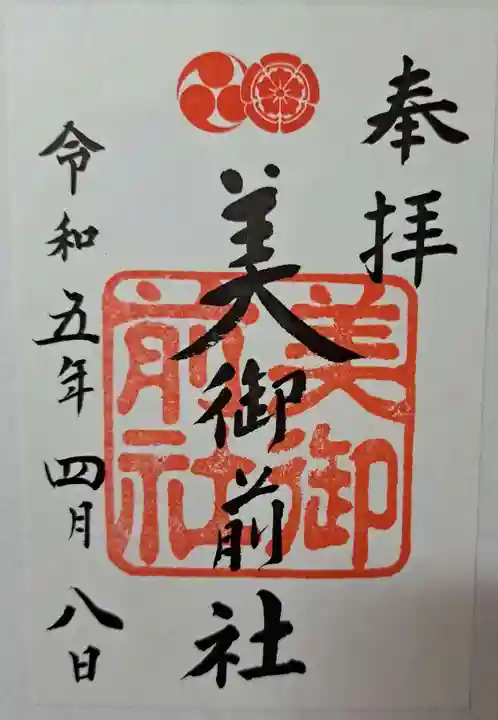 奉拝
美御前社
美御
前社
令和五年四月八日